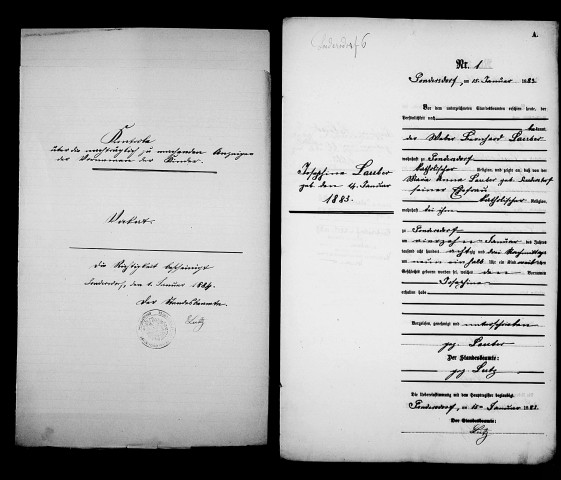 Kontrole
über die nachträglich zu machenden Anzeigen
der Vornamen der Kinder.
Vakat.
Die Richtigkeit bescheinigt
den 1. Januar 1884.
Der Standesbeamte
Lutz
6
A.
Nr. 1
am 15. Januar 1883.
Vor dem unterzeichneten Standesbeamten erschien heute, der
Persönlichkeit nach
bekannt,
der Weber Bernhard Lauber
wohnhaft zu
katholischer Religion, und zeigte an, daß von der
Maria Anna Lauber geb.
seiner Ehefrau
katholischer Religion,
wohnhaft bei ihm
zu
am vierzehn Januar des Jahres
tausend acht hundert achtzig und drei Vormittags
um neun ein halb Uhr ein Kind weiblichen
Geschlechts geboren worden sei, welches den Vornamen
Josephina
erhalten habe
Josephina Lauber
geb. den 14. Januar
1883.
Vorgelesen, genehmigt und unterschrieben
gez. Lauber
Der Standesbeamte:
gez. Lutz
Die Uebereinstimmung mit dem Hauptregister beglaubigt.
am 15. Januar 1883.
Der Standesbeamte:
Lutz